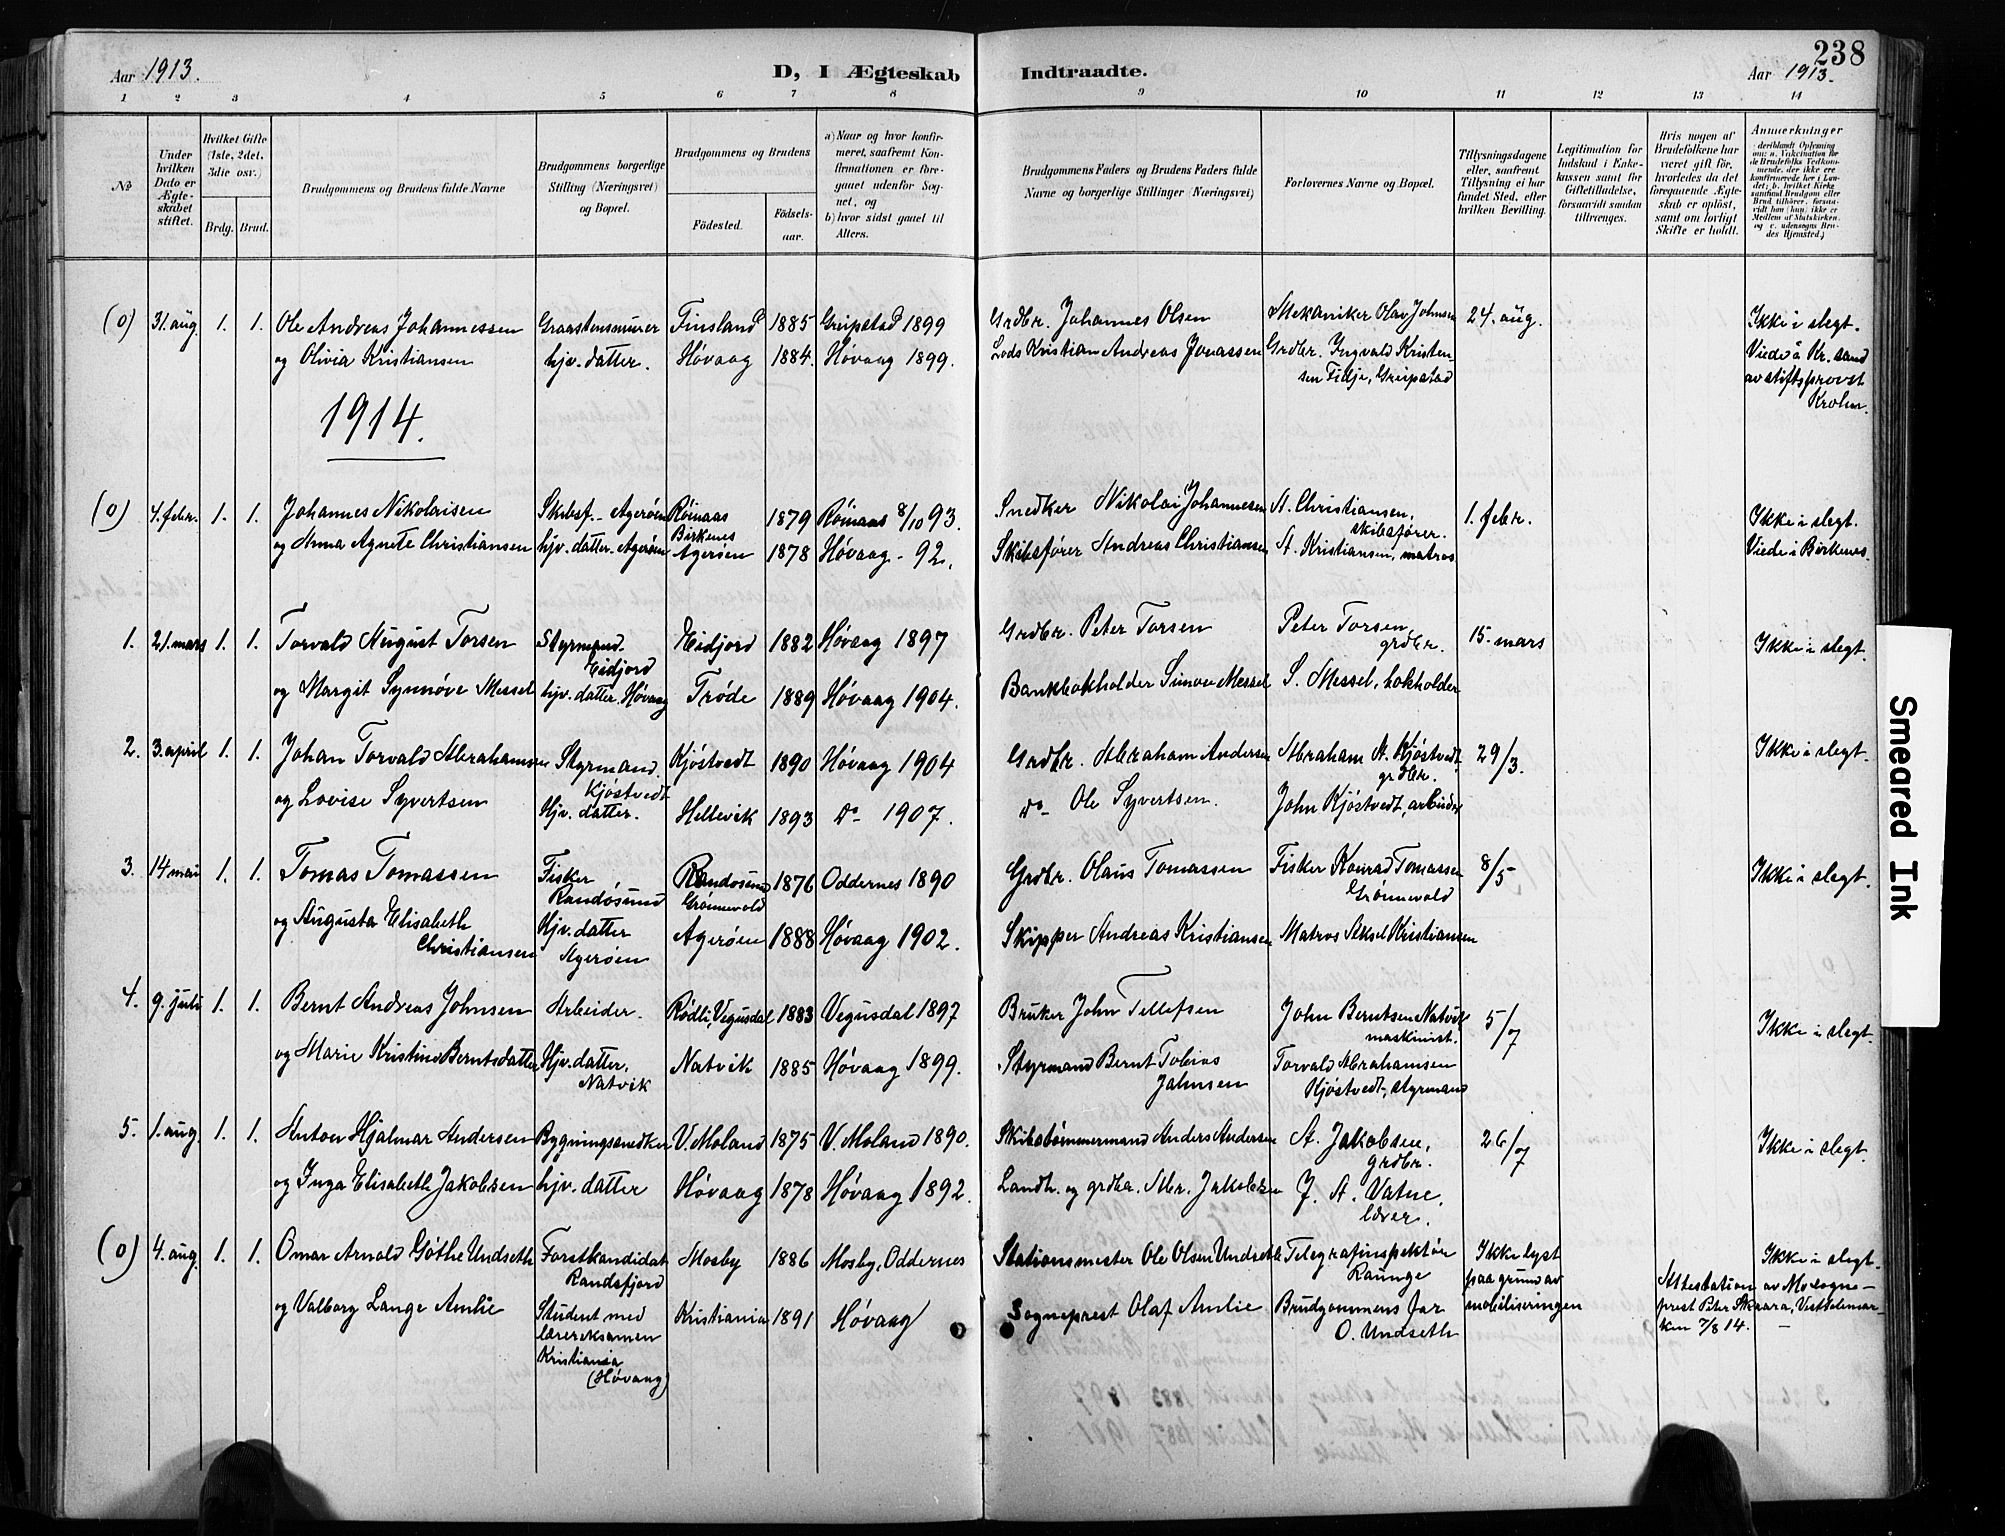 238
Aar 1913.
D, I Ægteskab Indtraadte.
Aar 1913.
1 2 3 4 5 6 7 8 9 10 11 12 13 14
No
Under hvilken Dato er Ægteskabet stiftet.
Hvilket Gifte (1ste, 2det, 3die osv.)
Brdg. Brud.
Brudgommens og Brudens fulde Navne
Brudgommens borgerlige Stilling (Næringsvei) og Bopæl.
Brudgommens og Brudens
Fødested. Fødselsaar.
a) Naar og hvor konfirmeret, saafremt Konfirmationen er foregaaet udenfor Sognet, og
b) hvor sidst gaaet til Alters.
Brudgommens Faders og Brudens Faders fulde Navne og borgerlige Stillinger (Næringsvei)
Forlovernes Navne og Bopæl.
Tillysningsdagene eller, saafremt Tillysning ei har fundet Sted, efter hvilken Bevilling.
Legitimation for Indskud i Enkekassen samt for Giftetilladelse, forsaavidt saadan tiltrænges.
Hvis nogen af Brudefolkene har været gift før, hvorledes da det foregaaende Ægteskab er opløst, samt om lovligt Skifte er holdt.
Anmerkninger
(0) 31. aug. 1. 1. Ole Andreas Johannessen Graastensmurer Finsland 1885 Greipstad 1899 Grdbr. Johannes Olsen Mekaniker Olav Johnsen 24. aug. Ikke i slegt.
og Olivia Kristiansen hjv. datter. Høvaag 1884. Høvaag 1899. Lods Kristian Andreas Jonassen Grdbr. Ingvald Kristensen Fidje, Greipstad Viede i Kr.sand av stiftsprovst Krohn.
1914.
(0) 4. febr. 1. 1. Johannes Nikolaisen Skibsf. Agerøen Røinaas Birkenes 1879 Røinaas 8/10 93. Snedker Nikolai Johannesen A. Christiansen, skibsfører. 1. febr. Ikke i slegt.
og Anna Agnete Christiansen hjv. datter. Agerøen Agerøen 1878 Høvaag - 92. Skibsfører Andreas Christiansen A. Kristiansen, matros Viede i Birkenes.
1. 21. mars 1. 1. Torvald August Torsen Styrmand. Eidjord Eidjord 1882 Høvaag 1897 Grdbr. Peter Torsen Peter Torsen grdbr. 15. mars Ikke i slegt.
og Margit Synnøve Messel hjv. datter. Høvaag Trøde 1889 Høvaag 1904. Bankbokholder Simon Messel S. Messel, bokholder
2. 3. april 1. 1. Johan Torvald Abrahamsen Styrmand. Kjøstvedt Kjøstvedt 1890 Høvaag 1904 Grdbr. Abraham Andersen Abraham A. Kjøstvedt, grdbr. 29/3. Ikke i slegt.
og Lovise Syvertsen Hjv. datter. Hellevik 1893 do 1907. do Ole Syvertsen. John Kjøstvedt, arbeider
3. 14 mai 1. 1. Tomas Tomassen Fisker Randøsund Randøsund Grønnevold 1876 Oddernes 1890 Grdbr. Olaus Tomassen Fisker Konrad Tomassen Grønnevold 8/5 Ikke i slegt.
og Augusta Elisabeth Christiansen Hjv. datter Agerøen Agerøen 1888 Høvaag 1902. Skipper Andreas Kristiansen Matros Aksel Kristiansen
4. 9. juli 1. 1. Bernt Andreas Johnsen Arbeider. Rødli, Vegusdal 1883 Vegusdal 1897 Bruker John Tellefsen John Berntsen Natvik maskinist. 5/7 Ikke i slegt.
og Marie Kristine Berntsdatter Hjv. datter, Natvik Natvik 1885 Høvaag 1899. Styrmand Bernt Tobias Johnsen Torvald Abrahamsen Kjøstvedt, styrmand
5. 1. aug. 1. 1. Anton Hjalmar Andersen Bygningssnedker V. Moland 1875 V. Moland 1890. Skibstømmermand Anders Andersen A. Jakobsen, grdbr. 26/7 Ikke i slegt.
og Inga Elisabeth Jakobsen hjv. datter Høvaag 1878 Høvaag 1892. Landh. og grdbr. Abr. Jakobsen J. A. Vatne, lærer.
(0) 4. aug. 1. 1. Omar Arnold Göthe Undseth Forstkandidat Randsfjord Mosby 1886 Mosby, Oddernes Stationsmester Ole Olsen Undseth Telegrafinspektør Raunge Ikke lyst paa grund av mobiliseringen Ikke i slegt.
og Valborg Lange Amlie Student med lærereksamen Kristiania (Høvaag) Kristiania 1891 Høvaag Sogneprest Olaf Amlie Brudgommens far O. Undseth Attestation av Mo sogneprest Peter Skaara, Vesttelemarken 7/8 14.
Smeared Ink